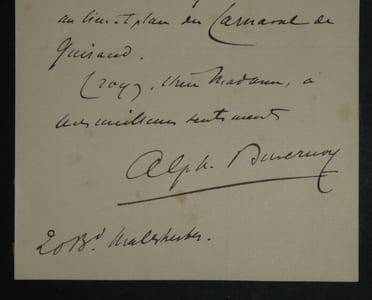 au lieu et plan du Carnaval de
Guiraud.
Croyez, chère Madame, à
mes meilleurs sentiments
Alph. Duvernoy
20 Bd. Malesherbes.